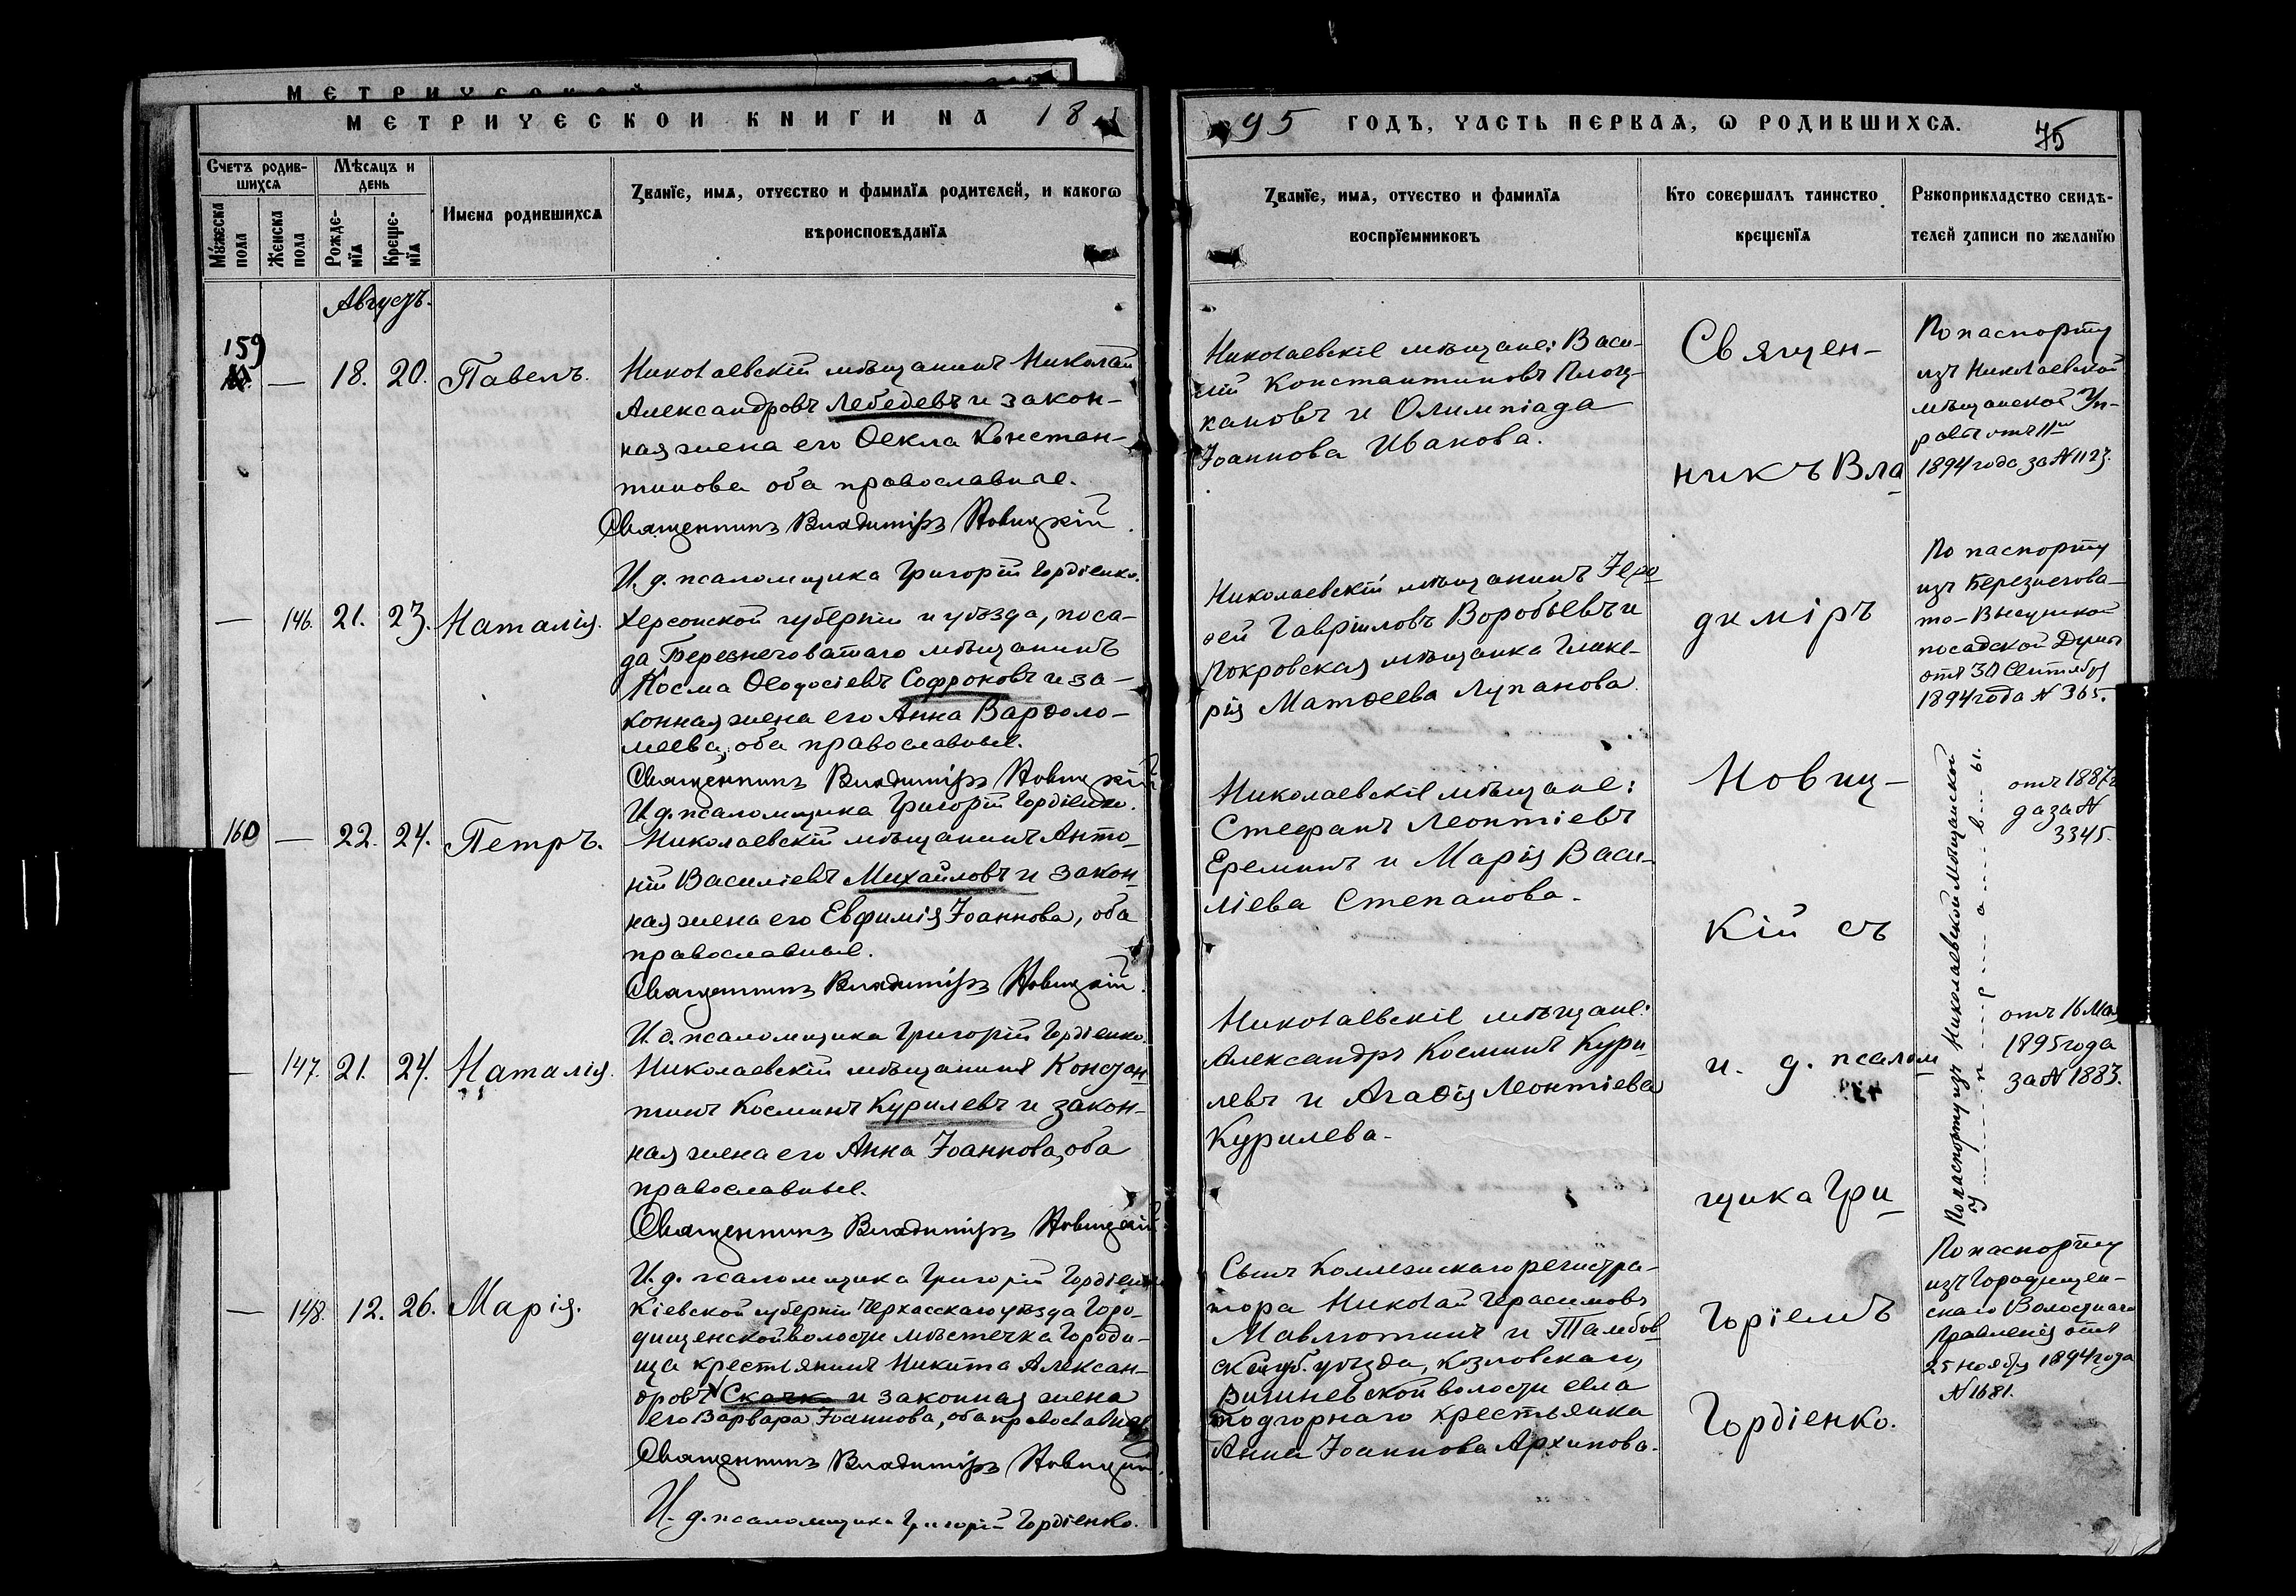 МЕТРИЧЕСКОЙ
МЕТРИЧЕСКОЙ КНИГИ НА 18
95 ГОДЪ, ЧАСТЬ ПЕРВАЯ, Ѡ РОДИВШИХСЯ.
75
Счетъ родив-
шихся
Мѣсяцъ и
день
Имена родившихся
Званїе, имя, отчество и фамилїя родителей, и какогѡ
вѣроисповѣданїя
Мужеска
пола
Женска
пола
Рожде-
нїя
Креще-
нїя
Званїе, имя, отчество и фамилїя
воспрїемниковъ
Кто совершалъ таинство
крещенїя
Рукоприкладство свидѣ-
телей записи по желанїю
Августъ.
159
— 18. 20. Павелъ.
Николаевскій мѣщанинъ Николай
Александровъ Лебедевъ и закон-
ная жена его Ѳекла Констан-
тинова оба православные.
Священникъ Владиміръ Новицкій.
И. д. псаломщика Григорій Гордіенко.
Николаевскіе мѣщане: Васи-
лій Константиновъ Плоц-
кановъ и Олимпіада
Іоаннова Иванова.
По паспорту
изъ Николаевской
мѣщанской Уп-
равы отъ 11
1894 года за №
— 146. 21. 23. Наталія.
Херсонской губерніи и уѣзда, поса-
да Березнеговатаго мѣщанинъ
Косма Ѳеодосіевъ Софроновъ и за-
конная жена его Анна Варѳоло-
меева, оба православные.
Священникъ Владиміръ Новицкій
И. д. псаломщика Григорій Гордіенко.
Николаевскій мѣщанинъ Іеро-
ѳей Гавріиловъ Воробьевъ и
Покровская мѣщанка Глике-
рія Матѳеева Лупанова.
По паспорту
изъ Березнегова-
то-Висунской
посадской Думы
отъ 30 Сентября
1894 года № 365.
160 — 22. 24. Петръ.
Николаевскій мѣщанинъ Анто-
ній Василіевъ Михайловъ и закон-
ная жена его Евфимія Іоаннова, оба
православные.
Священникъ Владиміръ Новицкій.
И. д. псаломщика Григорій Гордіенко.
Николаевскіе мѣщане:
Стефанъ Леонтіевъ
Ереминъ и Марія Васи-
ліева Степанова.
По паспорту изъ Николаевской мѣщанской
У п р а в ы.
отъ 1887 г
да за №
3345.
— 147. 21. 24. Наталія.
Николаевскій мѣщанинъ Констан
тинъ Косминъ Курилевъ и закон-
ная жена его Анна Іоаннова, оба
православные.
Священникъ Владиміръ Новицкій
И. д. псаломщика Григорій Гордіенко
Николаевскіе мѣщане:
Александръ Косминъ Кури-
левъ и Агаѳія Леонтіева
Курилева.
отъ 16 Мая
1895 года
за № 1883.
— 148. 12. 26. Марія.
Кіевской губерніи Черкасскаго уѣзда Горо-
дищенской волости мѣстечка Городи-
ща крестьянинъ Никита Алексан-
дровъ Скачко и законная жена
его Варвара Іоаннова, оба православные
Священникъ Владиміръ Новицкій.
И. д. псаломщика Григорій Гордіенко.
Сынъ Коллежскаго регистра-
тора Николай Герасимовъ
Мавлютинъ и Тамбов
ской губ. уѣзда, Козловскаго,
Вишневской волости села
Подгорнаго крестьянка
Анна Іоаннова Архипова.
По паспорту
изъ Городищен-
скаго Волостнаго
Правленія отъ
25 ноября 1894 года
№ 1681.
Священ-
никъ Вла-
диміръ
Новиц-
кій съ
и. д. псалом-
щика Гри-
горіемъ
Гордіенко.